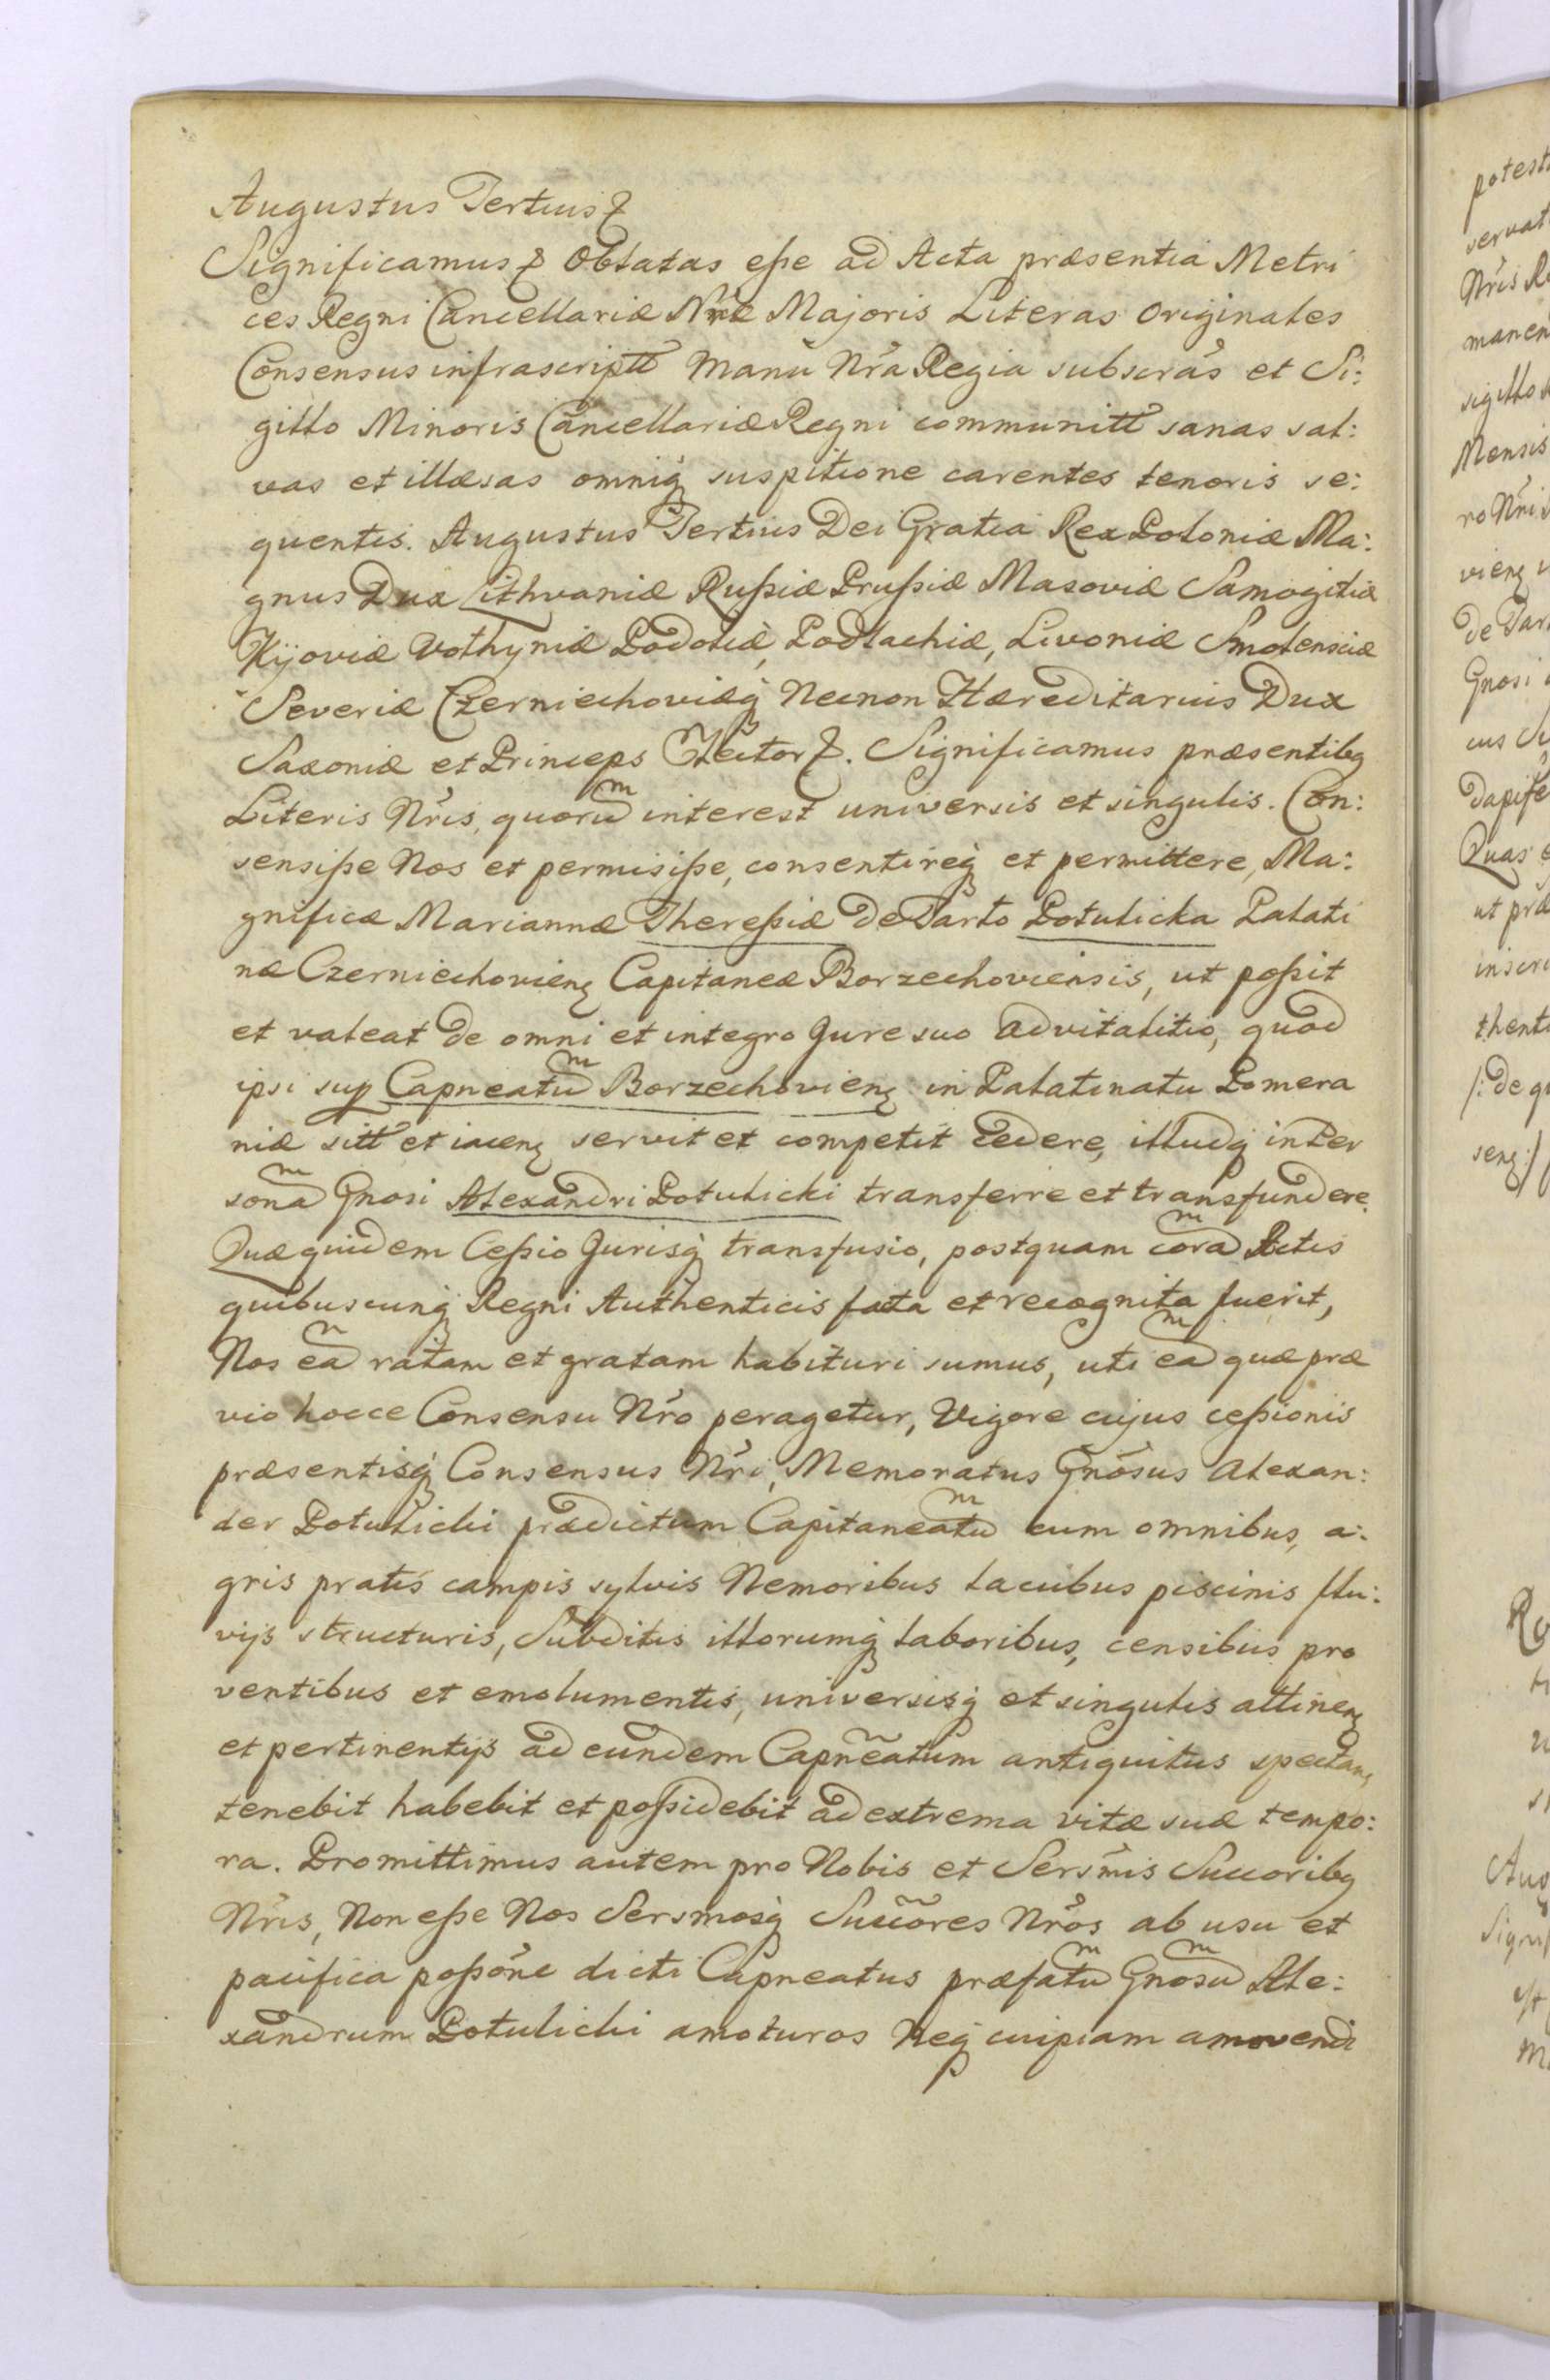 Augustus Tertius &
Significamus & Oblatas eße ad Acta præsentia Metri
ces Regni Cancellariæ Nræ Majoris Literas Originales
Consensus infrascriptt Manu Nra Regia subscras et Si:
gillo Minoris Cancellariæ Regni communitt sanas sal:
vas et illæsas omniq suspitione carentes tenoris se:
quentis. Augustus Tertius Dei Gratia Rex Poloniæ Ma:
gnus Dux Lithvaniæ Rußiæ Prußiæ Masoviæ Samogitiæ
Kijoviæ Volhyniæ Podoliæ, Podlachiæ, Livoniæ Smolensciæ
Severiæ Czerniechoviæq Necnon Hæreditarius Dux
Saxoniæ et Princeps Elector &. Significamus præsentibq
Literis Nris, quorum interest universis et singulis. Con:
sensiße Nos et permisiße, consentireq et permittere, Ma:
gnificæ Mariannæ Thereßiæ de Tarlo Potulicka Palati
næ Czerniechovien Capitaneæ Borzechoviensis, ut poßit
et valeat de omni et integro Jure suo advitalitio, quod
ipsi sup Capneatum Borzechovien in Palatinatu Pomera
niæ sitt et iacen servit et competit cedere, illudq in Per
sonam Gnosi Alexandri Potulicki transferre et transfundere.
Quæ quidem Ceßio Jurisq transfusio, postquam coram Actis
quibuscunq Regni Authenticis facta et recognita fuerit,
Nos eam ratam et gratam habituri sumus, uti eam quæ præ
vio hocce Consensu Nro peragetur, Vigore cujus ceßionis
præsentisq Consensus Nri, Memoratus Gnosus Alexan:
der Potulicki prædictum Capitaneatum cum omnibus, a:
gris pratis campis sylvis Nemoribus lacubus piscinis flu:
vijs structuris, Subditis illorumq laboribus, censibus pro
ventibus et emolumentis, universisq et singulis attinen
et pertinentijs ad eundem Capneatum antiquitus spectan
tenebit habebit et poßidebit ad extrema vitæ suæ tempo:
ra. Promittimus autem pro Nobis et Sersmis Succoribq
Nris, Non eße Nos Sersmosq Succores Nros ab usu et
pacifica poßone dicti Capneatus præfatum Gnosum Ale:
xandrum Potulicki amoturos Neq cuipiam amovendi